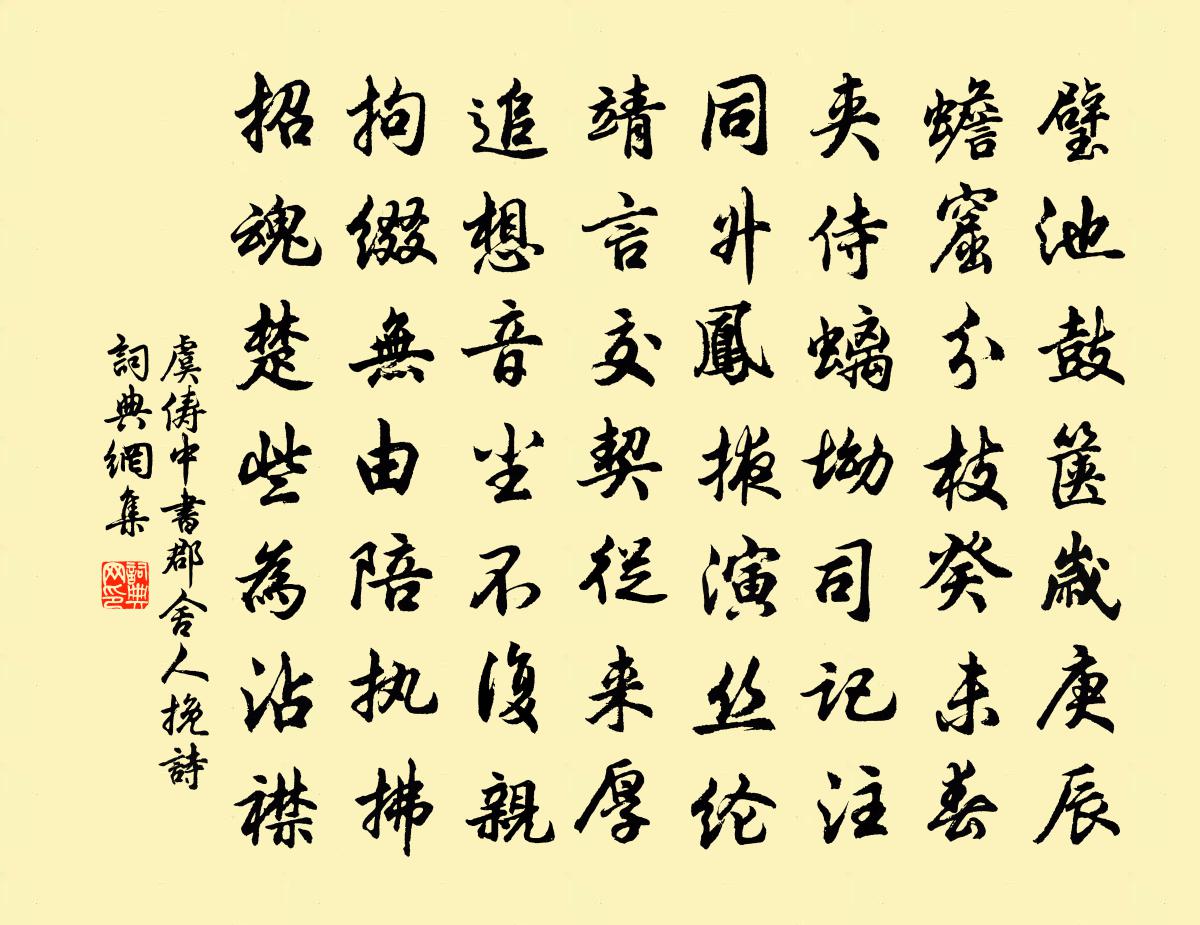 璧池鼓箧歲庚辰
蟾窟分枝癸未春
夹侍螭坳司记注
同升鳳掖演丝纶
靖言交契從来厚
追想音尘不復親
拘缀無由陪执拂
招魂楚些為沾襟
虞俦中書郡舍人挽詩
詞典網集
詞典网印